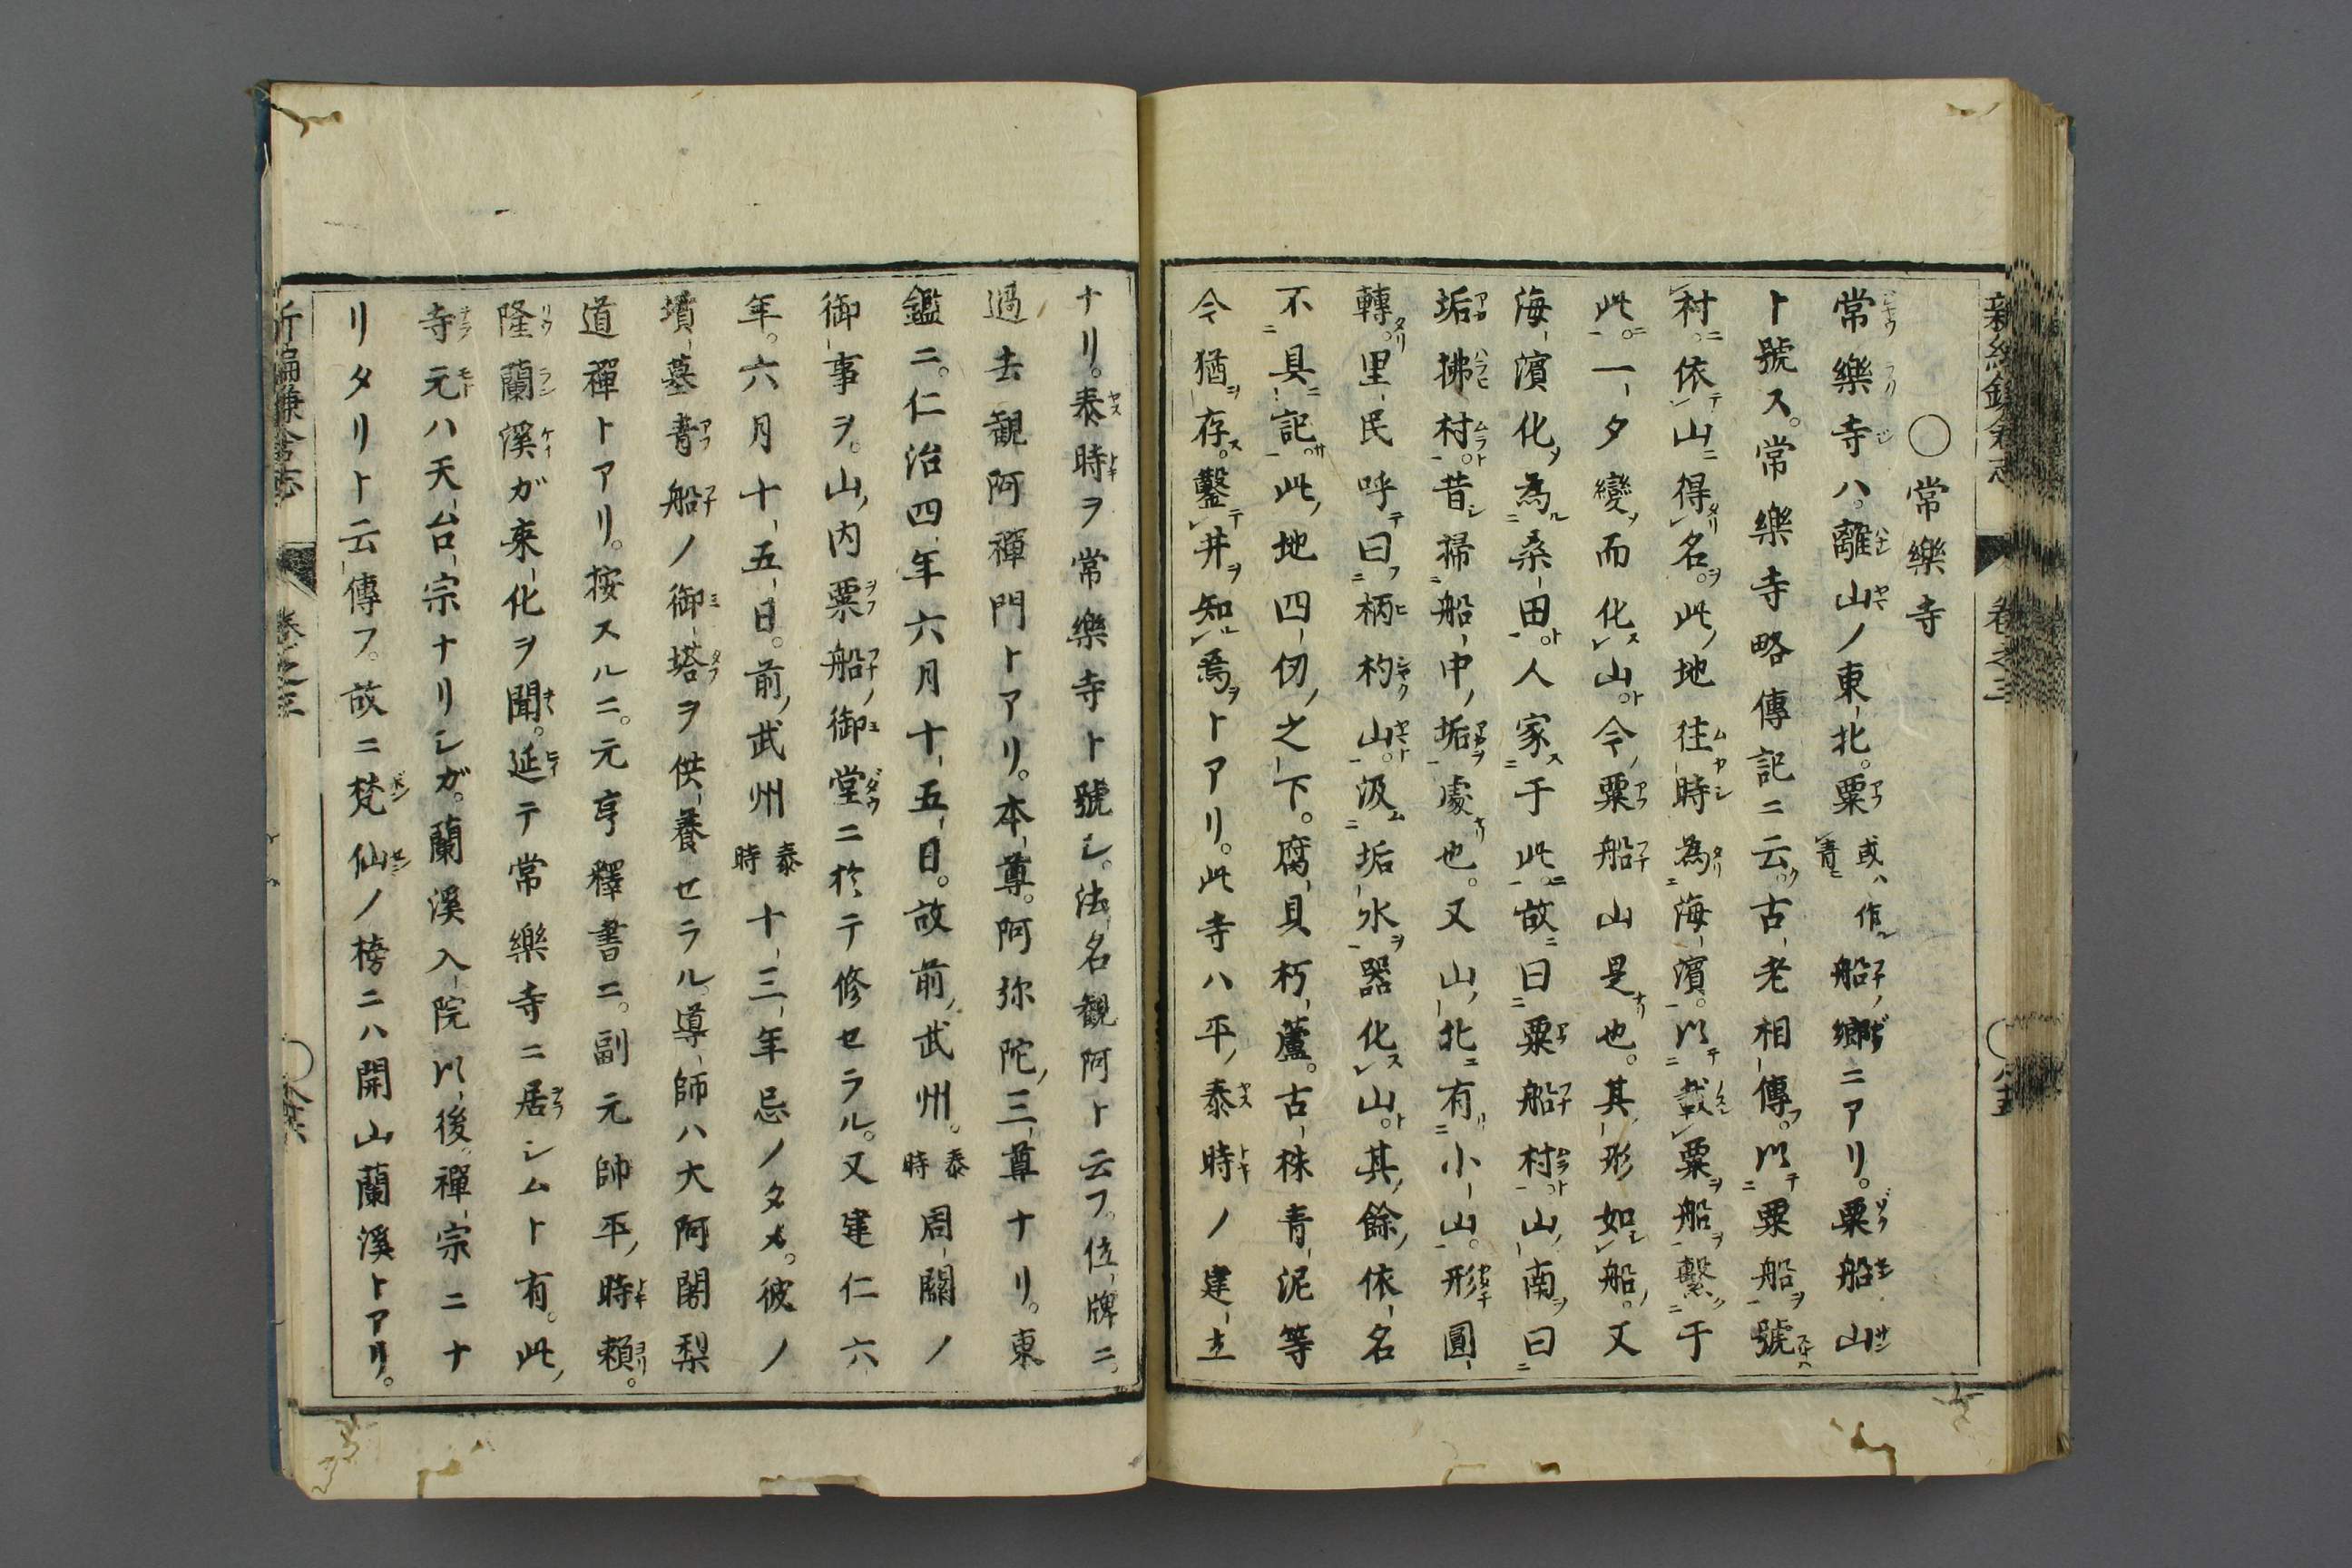 新編鎌倉志 卷之三 ○八十五
○常樂寺
常樂寺ハ。離山ノ東北。粟或ハ作青ニ船ノ鄉ニアリ。粟船山
ト號ス。常樂寺略傳記ニ云ク。古老相傳フ。以テ粟船ヲ號スルハ
村ニ。依テ山ニ得タリ名ヲ。此ノ地往時為タリ海濱。以テ載ル粟ヲ船ヲ繫ク于
此ニ。一夕變ヲ而化ス山ト。今ノ粟船山是ナリ也。其ノ形如シ船ノ。又
海濱化ヲ為ル桑田ト。人家ス于此ニ。故ニ曰粟船村ト。山ノ南ヲ曰
垢拂村ト。昔シ掃船中ノ垢ヲ處ナリ也。又山ノ北ニ有リ小山。形チ圓
轉タリ。里民呼テ曰フ柄杓山ト。汲ム垢水ヲ器化ス山ト。其ノ餘ノ依名
不具ニ記サ。此ノ地四仞ノ之下。腐貝朽蘆。古株青泥等
今猶ヲ存ス。鑿テ井ヲ知ル焉ヲトアリ。此寺ハ平ノ泰時ノ建立
ナリ。泰時ヲ常樂寺ト號シ。法名観阿ト云フ。位牌ニ。
過去観阿禪門トアリ。本尊。阿弥陀ノ三尊ナリ。東
鑑ニ。仁治四年六月十五日。故前ノ武州。泰時周闋ノ
御事ヲ。山ノ内粟船ノ御堂ニ於テ修セラル。又建仁六
年。六月十五日。前ノ武州泰時十三年忌ノタメ。彼ノ
墳墓青船ノ御塔ヲ供養セラル。導師ハ大阿闍梨
道禪トアリ。按スルニ。元亨釋書ニ。副元帥平ノ時賴。
隆蘭溪ガ来化ヲ聞キ。延テ常樂寺ニ居シムト有。此ノ
寺元ハ天台宗ナリシガ。蘭溪入院以後。禪宗ニナ
リタリト云傳フ。故ニ梵仙ノ榜ニハ開山蘭溪トアリ。
新編鎌倉志 卷之三 ○八十六